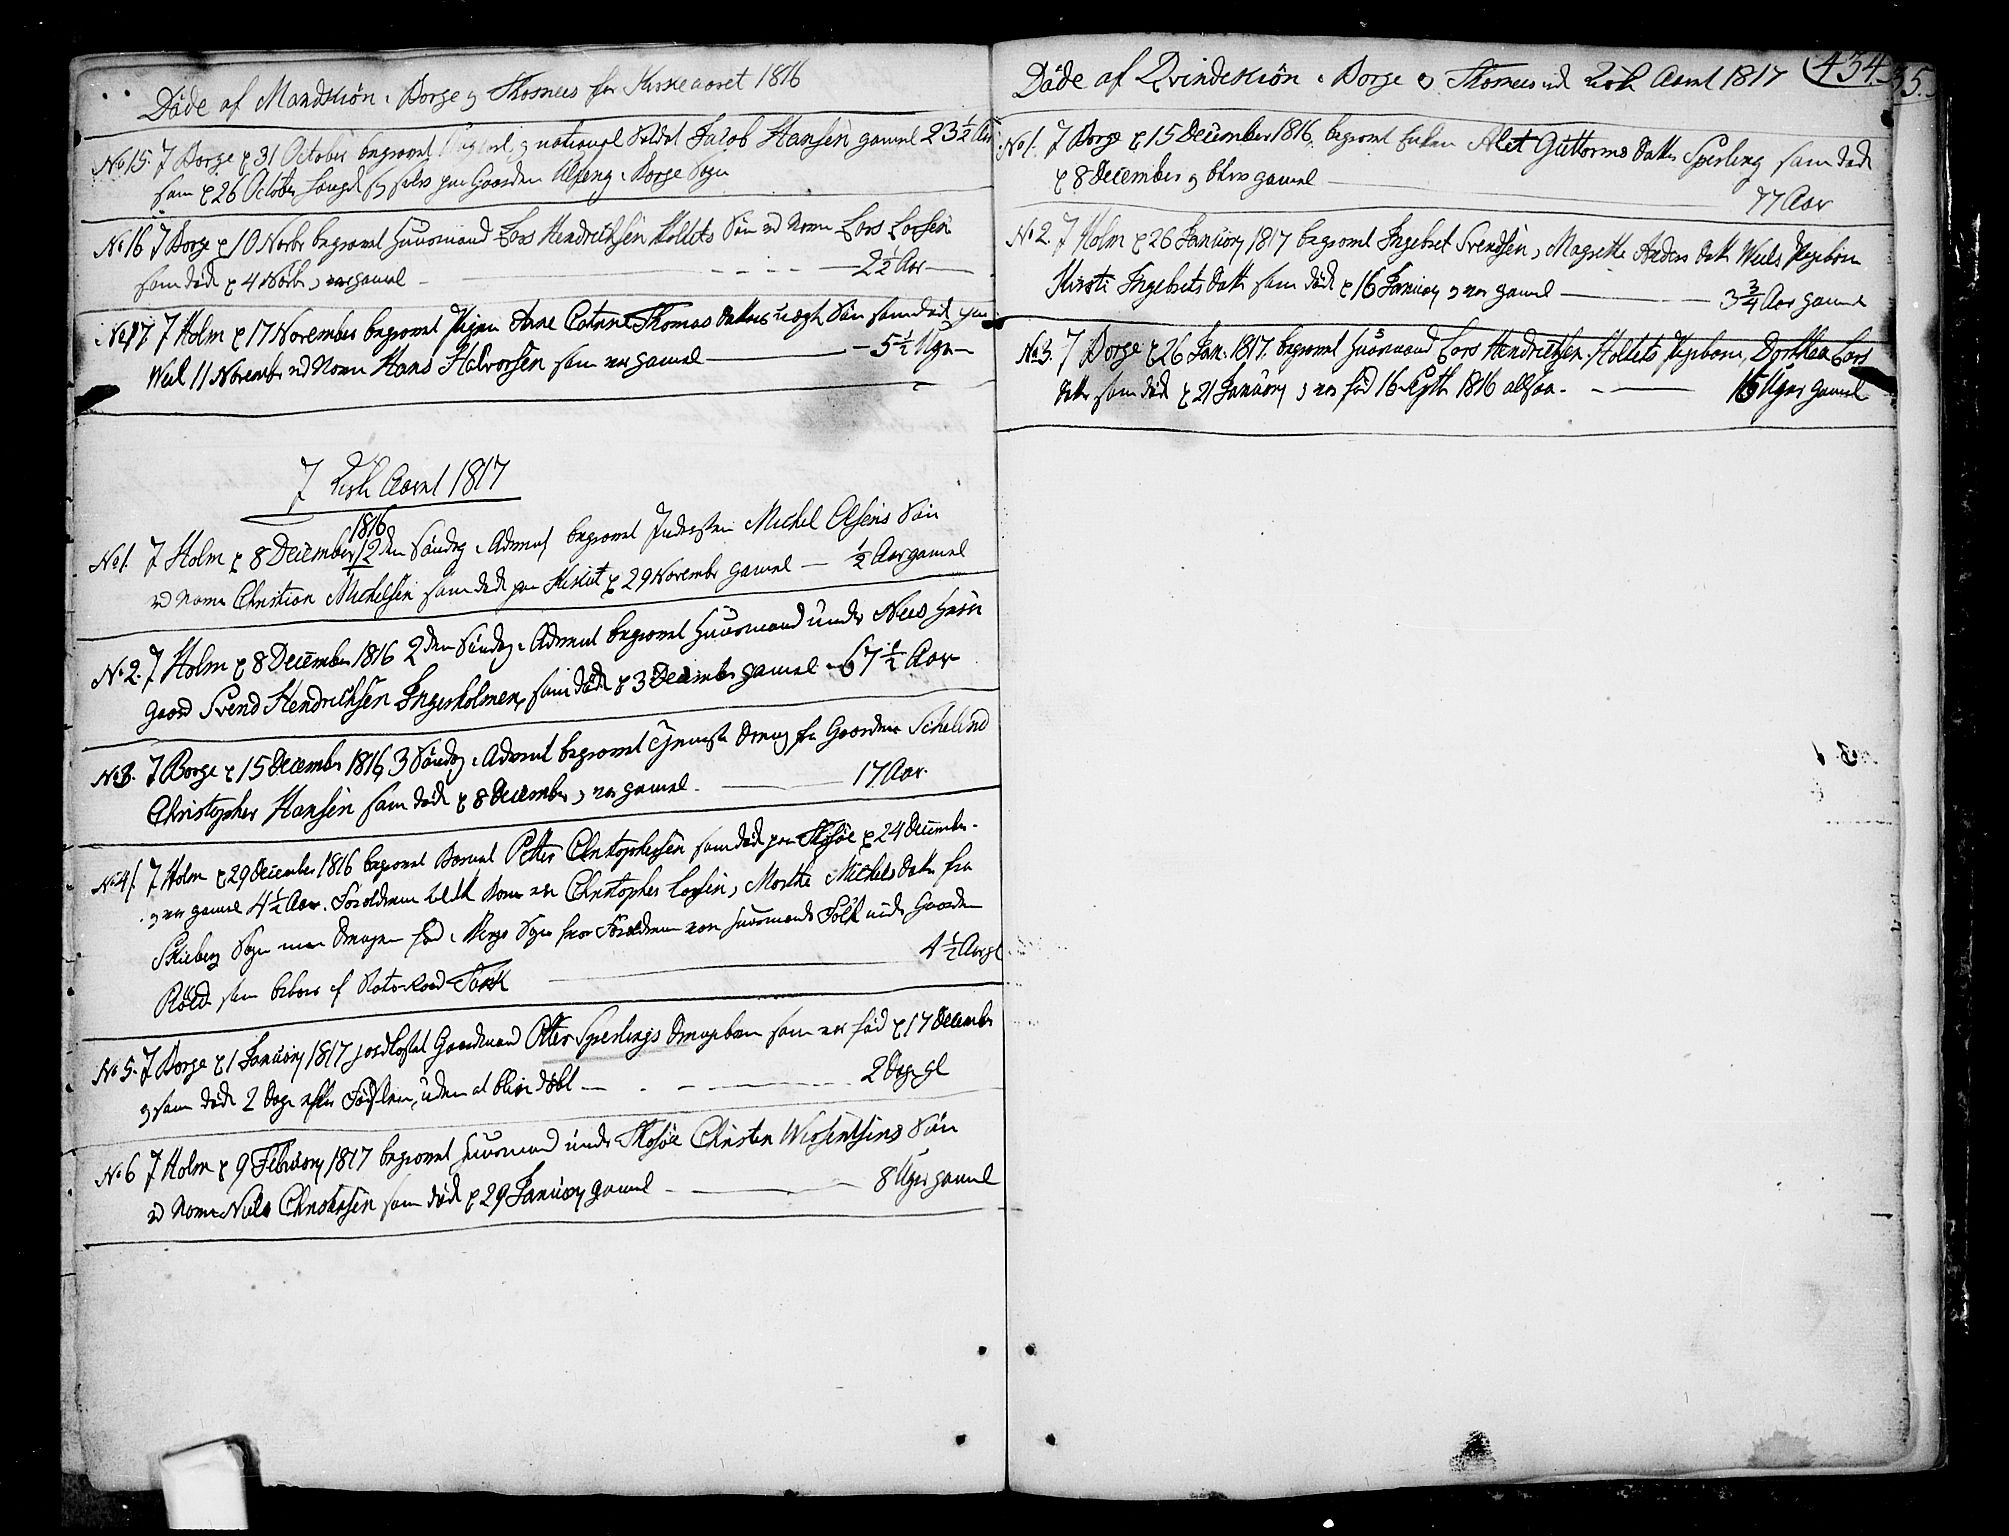 Döde af Mandkiön i Borge og Thorsnees for Kirkeaaret 1816
No 15. I Borge d 31 October begravet og national Soldat Jacob Hansen gammel 23½ Aar
som d 26 October hængde sig selv paa Gaarden i Borge Sogn
No 16 I Borge d 10 Novbr begravet Huusmand Lars Hendrichsen Holtets Sön ved Navn Lars Larsen
som döde d 4 Novbr, var gammel 2½ Aar
No 17. I Holm d 17 November begravet Pigen Anne Catrine Thomas datters uægte Sön som döde paa
Weel 11 November ved Navn Hans Halvorsen som var gammel 5½ Uge
I Kirke Aaret 1817
1816
No 1. I Holm d 8 December 2den Söndag i Advent begravet Indersten Michel Olsens Sön
ved Navn Christian Michelsen som döde paa d 29 Novembr gammel ½ Aar gammel
No 2. I Holm d 8 December 1816 2den Söndag i Advent begravet Huusmand under Nees Herre
gaard Svend Hendrichsen Ingerholmen, som döde d 3 December gammel 67½ Aar
No 3. I Borge d 15 December 1816, 3 Söndag i Advent begravet Dreng fra Gaarden Schelind
Christopher Hansen som döde d 8 December, var gammel 17 Aar
No 4. I Holm d 29 December 1816 begravet Barnet Petter Christophersen som döde paa Thosöe d 24 December
og var gammel 4½ Aar. Forældrene til dette Barn var Christopher Larsen, Marthe Michels datter fra
Skieberg Sogn men Drengen föd i Borge Sogn hvor Forældrene vare Huusmands Folk under Gaarden
Röed som beboes af 4½ Aar gl
No 5. I Borge d 1 Januarj 1817 jordfæstet Gaardmand Petter Sperlings Drengebarn som var föd d 17 December
og som döde 2 Dage efter Födslen, uden at blive döbt 2 Dage gl
No 6 I Holm d 9 Februarj 1817 begravet Huusmand under Thosöe Christen Sön
ved Navn Niels Christensen som döde d 29 Januarj gammel 8 Uger gammel
Döde af Qvindekiön i Borge og Thorsnees ved Kirke Aaret 1817
434
35.
No 1. I Borge d 15 December 1816, begravet Enken Alet Guttorms datter Sperling som döde
d 8 December og blev gammel 77 Aar
No 2. I Holm d 26 Januarj 1817 begravet Ingebret Svendsen, Magrethe Anders datter Weels Pigebarn
Kirsti Ingebrets datter som döde d 16 Januarj og var gammel 3¾ Aar gammel
No 3. I Borge d 26 Jan. 1817. begravet Huusmand Lars Hendrichsen Holtets Pigebarn, Dorthea Lars
datter som döde d 21 Januarj og var föd 16 Septbr 1816 altsaa 16 Uger gammel